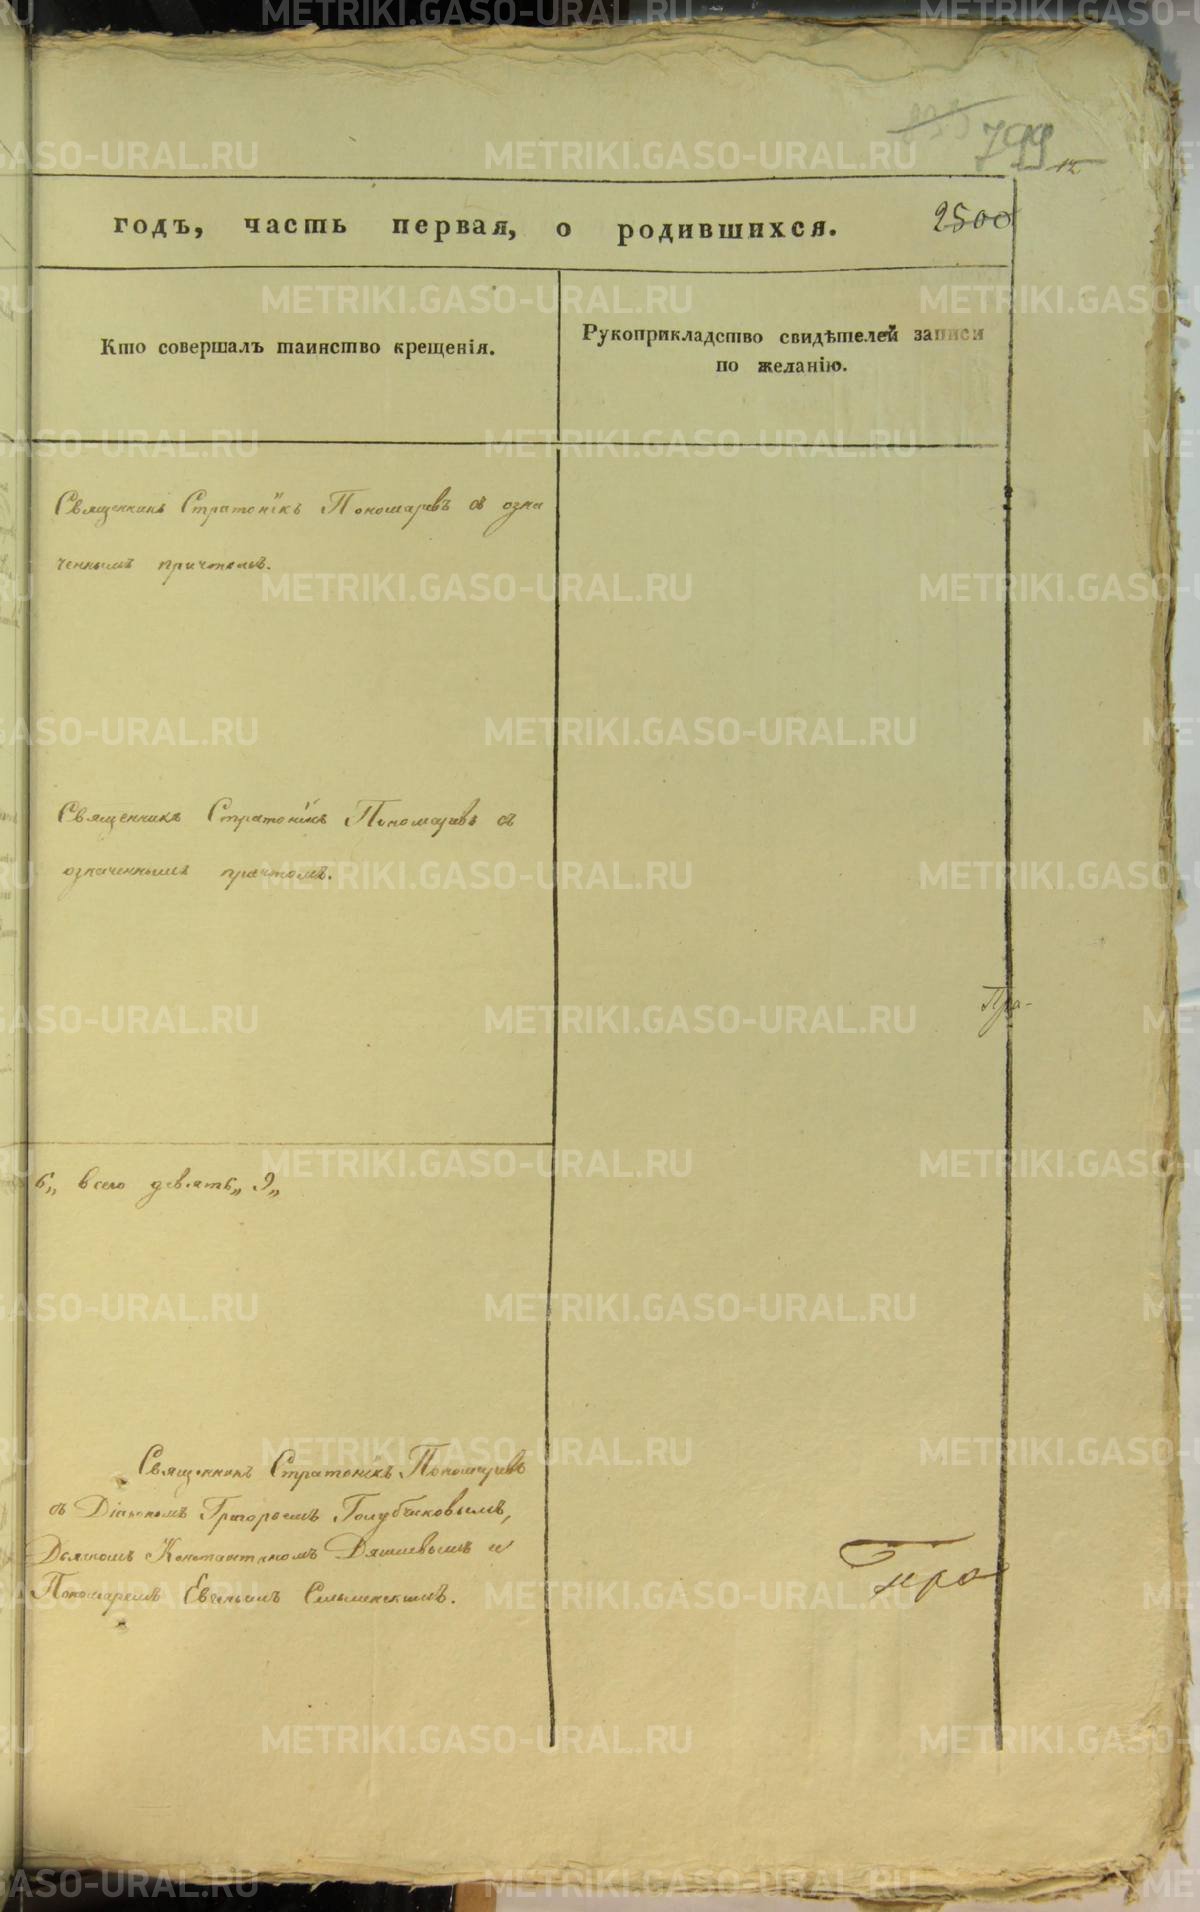 799
12
годъ, часть первая, о родившихся.
2500
Кто совершалъ таинство крещенія.
Рукоприкладство свидѣтелей записи
по желанію.
Священникъ Стратоникъ Пономаревъ съ озна
ченнымъ причтомъ.
Священникъ Стратоникъ Пономаревъ съ
означеннымъ причтомъ.
Пра-
6„ всего девять„ 9„
Священникъ Стратоникъ Пономаревъ
съ Діакономъ Григорьемъ Голубчиковымъ,
Дьячкомъ Константиномъ и
Пономаремъ
METRIKI.GASO-URAL.RU